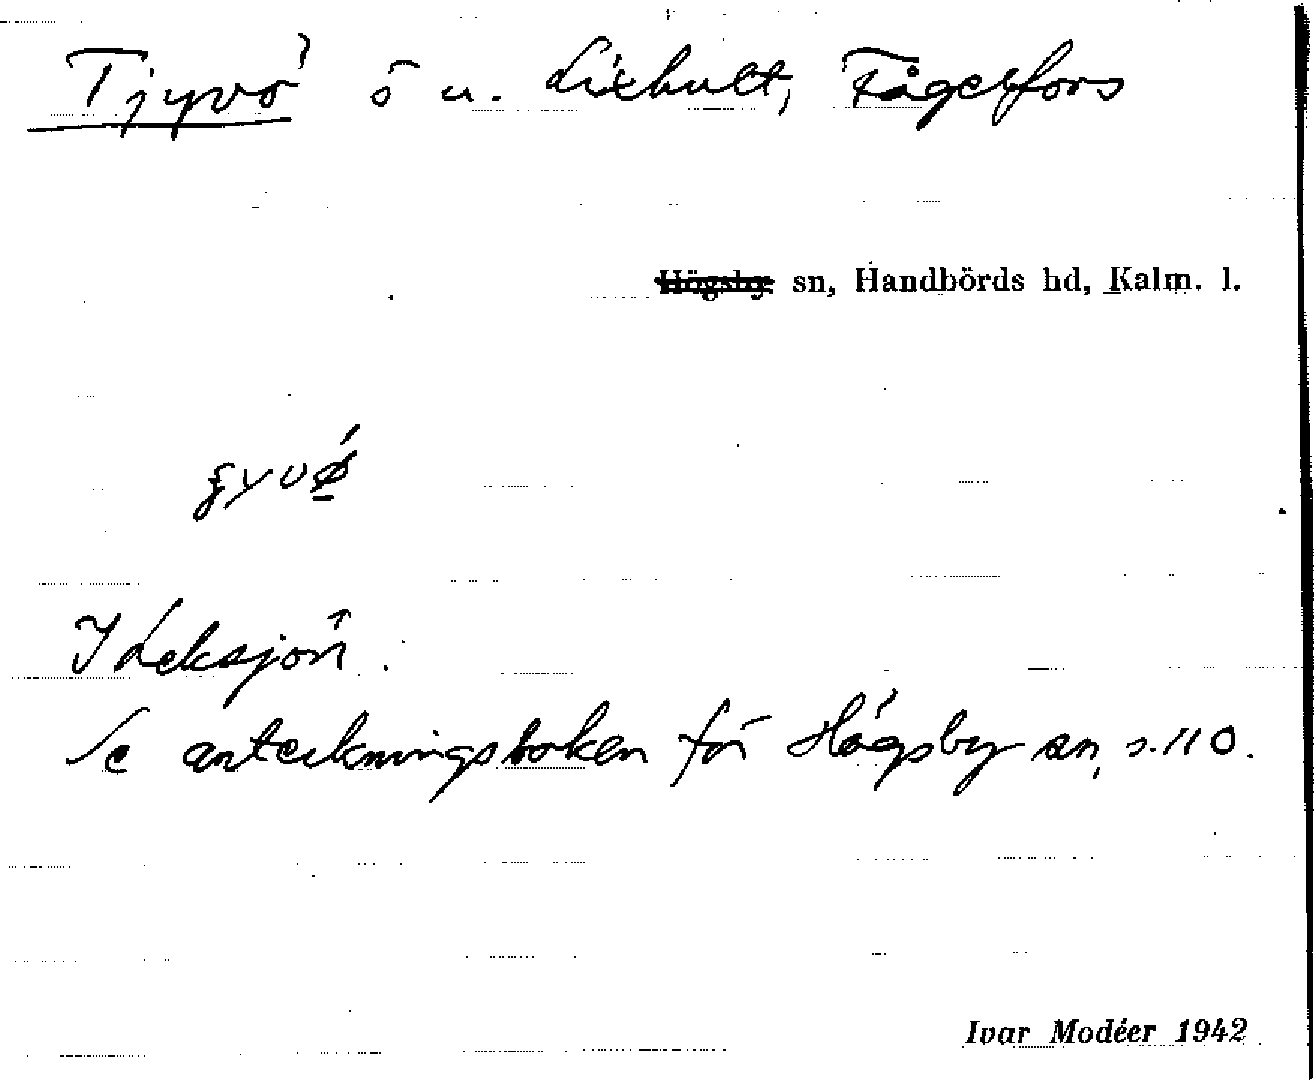 Tjyvö ö u. Lixhult, Fågelfors
Högsby sn, Handbörds hd, Kalm. l.
I Leksjön.
Se anteckningsboken för Högsby sn, s. 110.
Ivar Modéer 1942